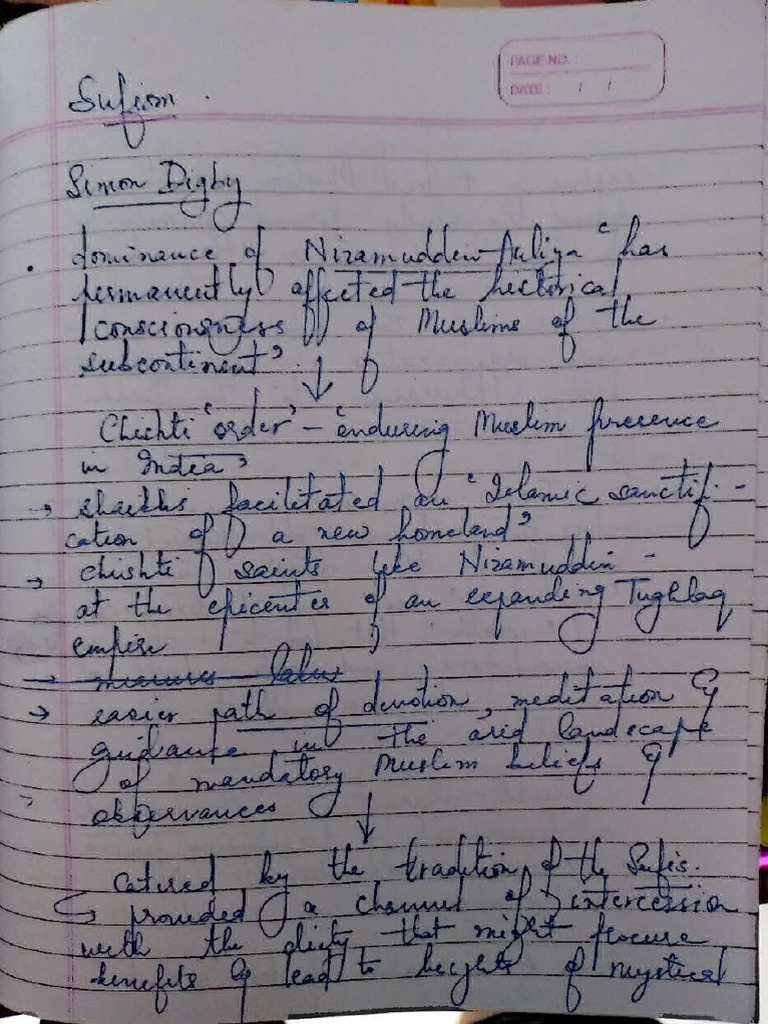 PAGE NO.:
DATE: / /
Sufism.
Simon Digby
• dominance of Nizamuddin Auliya "has
permanently affected the historical
consciousness of Muslims of the
subcontinent"
↓
Chishti 'order' – 'enduring Muslim presence
in India'
→ shaikhs facilitated an 'Islamic sanctifi-
cation of a new homeland'
→ chishti saints like Nizamuddin -
at the epicenter of an expanding Tughlaq
empire
→ easier path of devotion, meditation &
guidance in the arid landscape
of mandatory Muslim beliefs &
→ observances
↓
catered by the tradition of the Sufis.
↳ provided a channel of intercession
with the deity that might procure
benefits & lead to heights of mystical